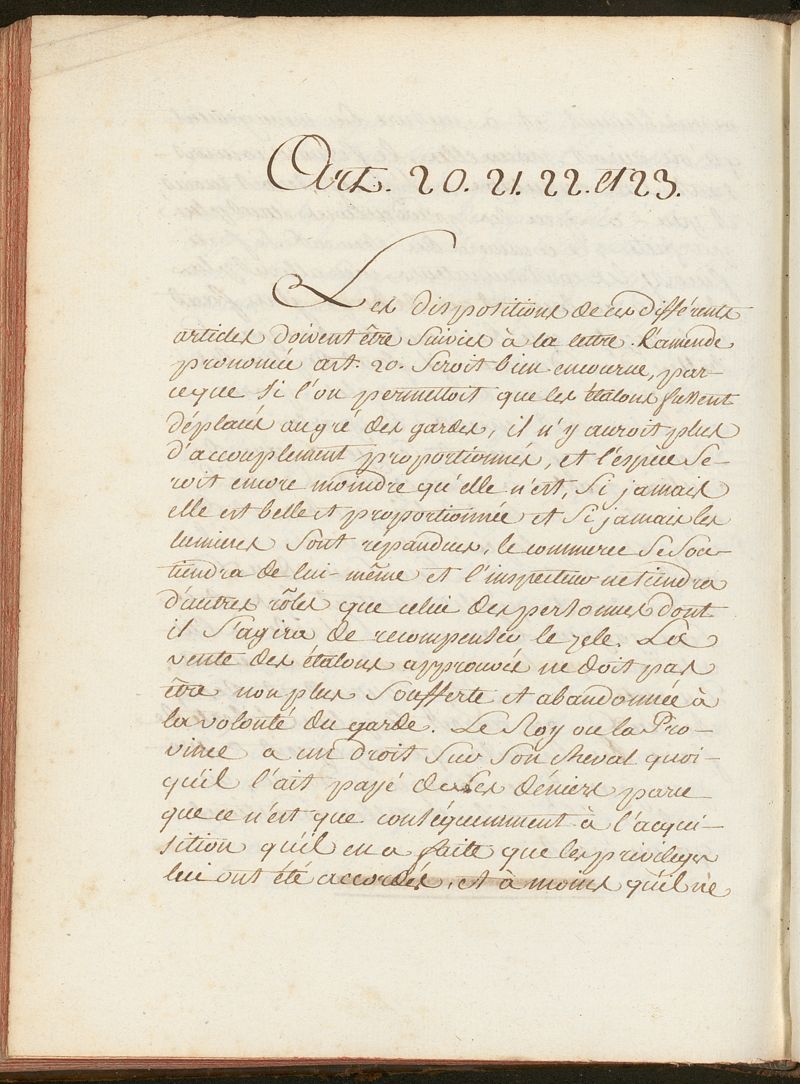 Art. 20. 21. 22. et 23.
Les dispositions de ces différents
articles doivent être suivies à la lettre. L'amende
prononcée art. 20. seroit bien encourue, par-
ceque si l'on permettoit que les étalons fussent
déplacés au gré des gardes, il n'y auroit plus
d'accouplement proportionnés, et l'espece se-
roit encore moindre qu'elle n'est, si jamais
elle est belle et proportionnée et si jamais les
lumieres sont répandues, le commerce se sou-
tiendra de lui-même et l'inspecteur ne tiendra
d'autres rôles que celui des personnes dont
il s'agira de recompenser le zele. La
vente des étalons approuvés ne doit pas
être non plus soufferte et abandonnée à
la volonté du garde. Le Roy ou la Pro-
vince a un droit sur son cheval quoi-
qu'il l'ait payé de ses déniers parce
que ce n'est que conséquemment à l'acqui-
sition qu'il en a faite que les privileges
lui ont été accordés, et à moins qu'il ne